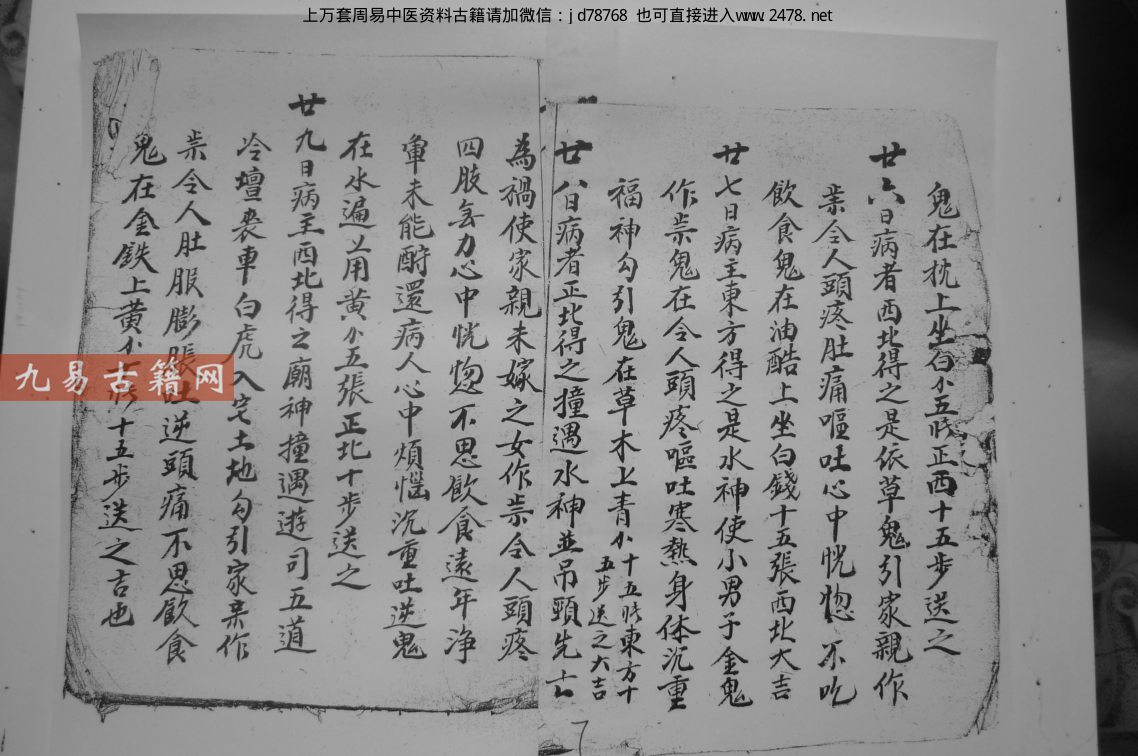 上万套周易中医资料古籍请加微信：jd78768 也可直接进入www.2478.net
鬼在枕上坐白小五㫵正西十五步送之
廿六日病者西北得之是依草鬼引家親作
祟令人頭疼肚痛嘔吐心中恍惚不吃
飲食鬼在油酷上坐白錢十五張西北大吉
廿七日病主東方得之是水神使小男子金鬼
作祟鬼在令人頭疼嘔吐寒熱身体沉重
福神勾引鬼在草木上青小十五㫵東方十
五步送之大吉
廿八日病者正北得之撞遇水神並吊頸先亡
為禍使家親未嫁之女作祟令人頭疼
四肢無力心中恍惚不思飲食遠年淨
未能酧還病人心中煩惱沉重吐逆鬼
在水邊上用黄小五張正北十步送之
廿九日病主西北得之廟神撞遇遊司五道
冷壇丧車白虎入宅土地勾引家親作
祟令人肚服膨脹吐逆頭痛不思飲食
鬼在金鉄上黄小十五步送之吉也
九易古籍网